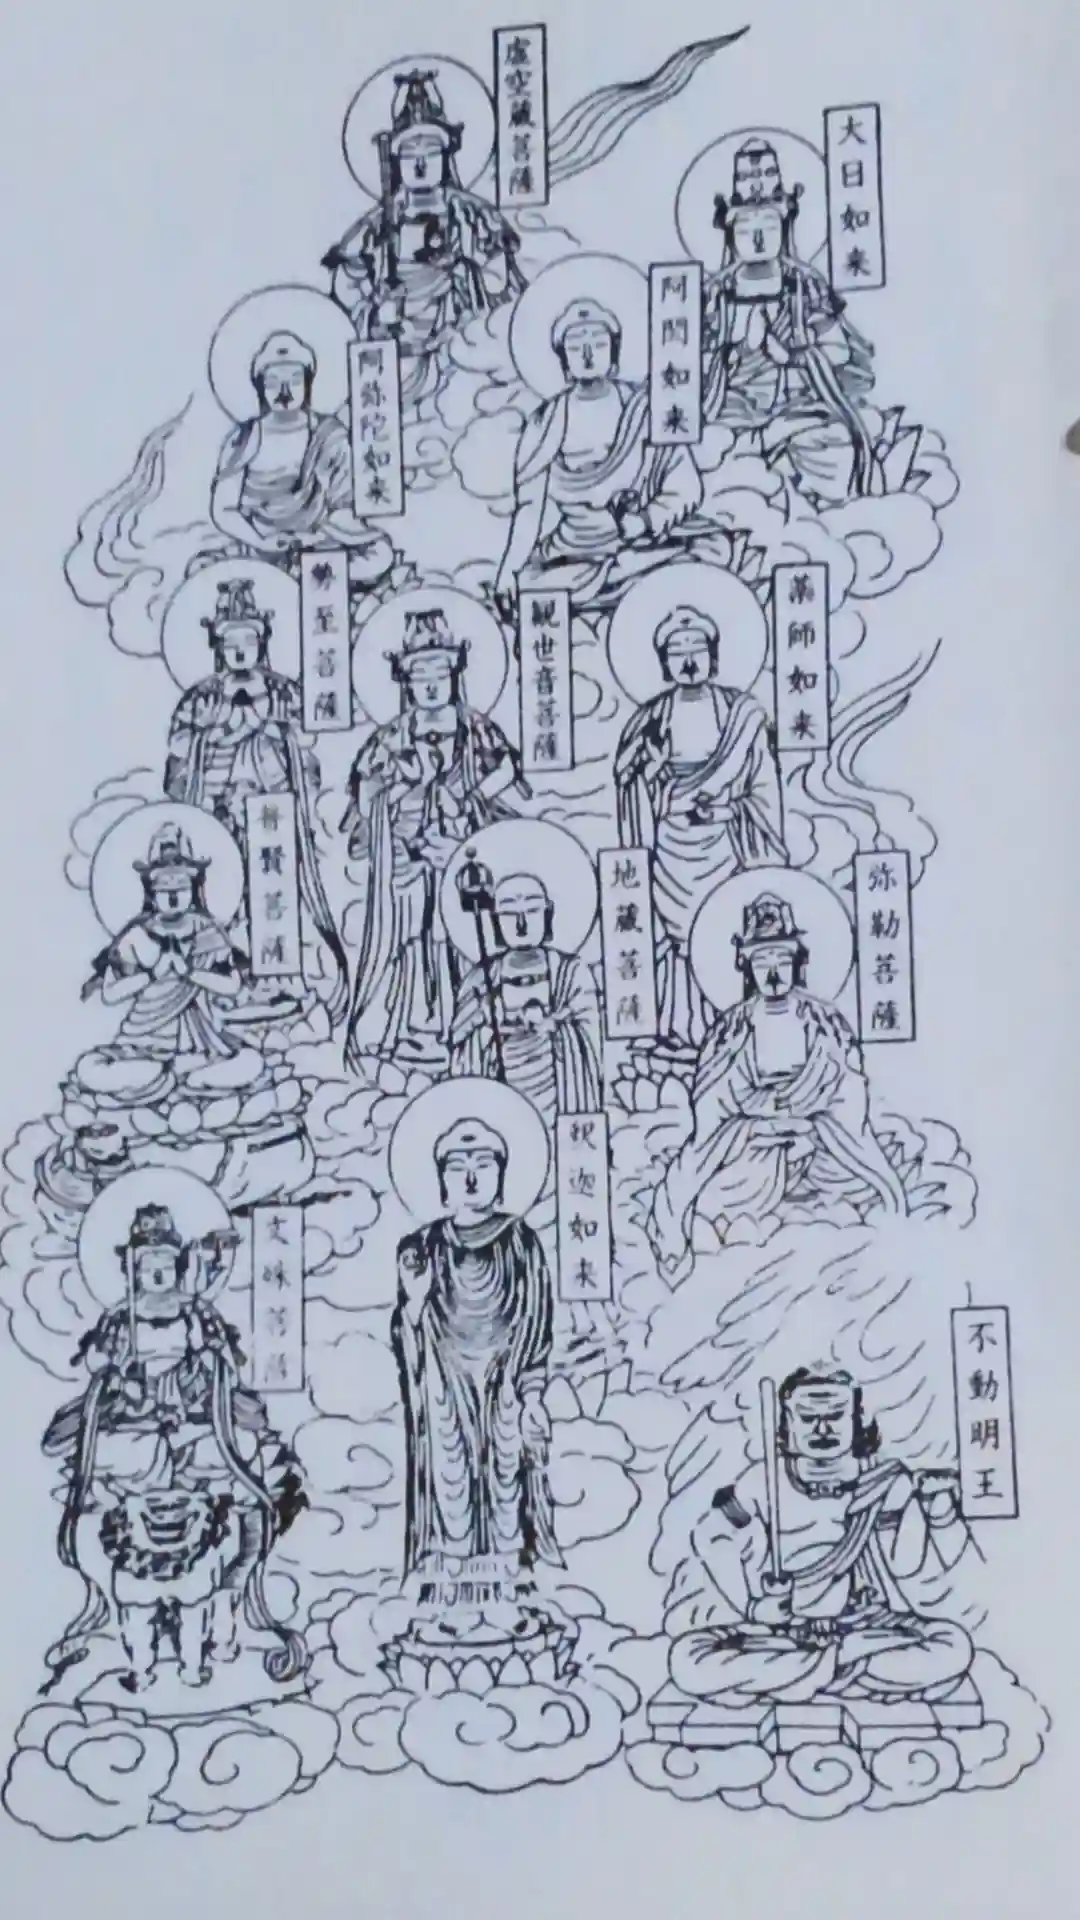 虚空蔵菩薩
大日如来
阿閦如来
阿弥陀如来
勢至菩薩
観世音菩薩
薬師如来
普賢菩薩
地蔵菩薩
弥勒菩薩
釈迦如来
文殊菩薩
不動明王